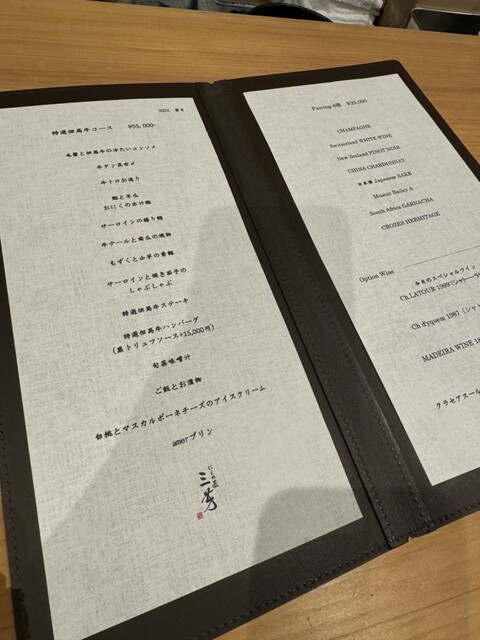 特選但馬牛コース ¥55,000-
毛蟹と但馬牛の冷たいコンソメ
牛タン昆布〆
牛トロお造り
鮑と芋瓜
おにくの出汁麺
サーロインの握り鮨
もずくと山芋の素麺
サーロインと焼き茄子の
しゃぶしゃぶ
特選但馬牛ステーキ
特選但馬牛ハンバーグ
(黒トリュフソース+15,000円)
旬菜味噌汁
ご飯とお漬物
白桃とマスカルポーネチーズのアイスクリーム
amorプリン
にくの匠
三芳
Pairing 8種 ¥35,000
CHAMPAGNE
Switzerland WHITE WINE
New Zealand PINOT NOIR
CHINA CHARDONNAY
日本酒 Japanese SAKE
Muscat Bailey A
South Africa GARNACHA
CROZES HERMITAGE
Option Wine
今月のスペシャルワイン
Ch.LATOUR 1999(シャトー・
Ch d'yquem 1987 (シャト
MADEIRA WINE
クラセアスール